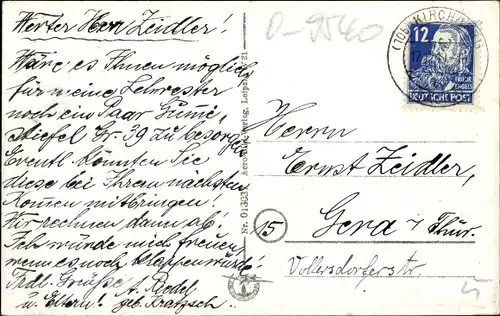 Werter Herr Zeidler!
Wäre es Ihnen möglich
für meine Schwester
noch ein Paar Gummi,
stiefel Gr. 39 zu besorgen
Eventl. könnten Sie
diese bei Ihrem nächsten
Kommen mitbringen!
Wir rechnen dann ab!
Ich würde mich freuen
wenn es noch klappen würde!
Frdl. Grüße A. Riedel
u. Eltern! geb. Kratzsch.
D-9540
(10b) KIRCHBERG
12
DEUTSCHE POST
Herrn
Ernst Zeidler,
15
Gera / Thür.
Vollersdorferstr.